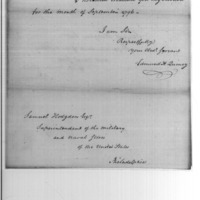 for the month of September 1796.
I am Sir
Respectfully
Your Obdt Servant
Samuel Hodgdon Esqr.
Superintendent of the military
and naval Stores
of the United States
Philadelphia